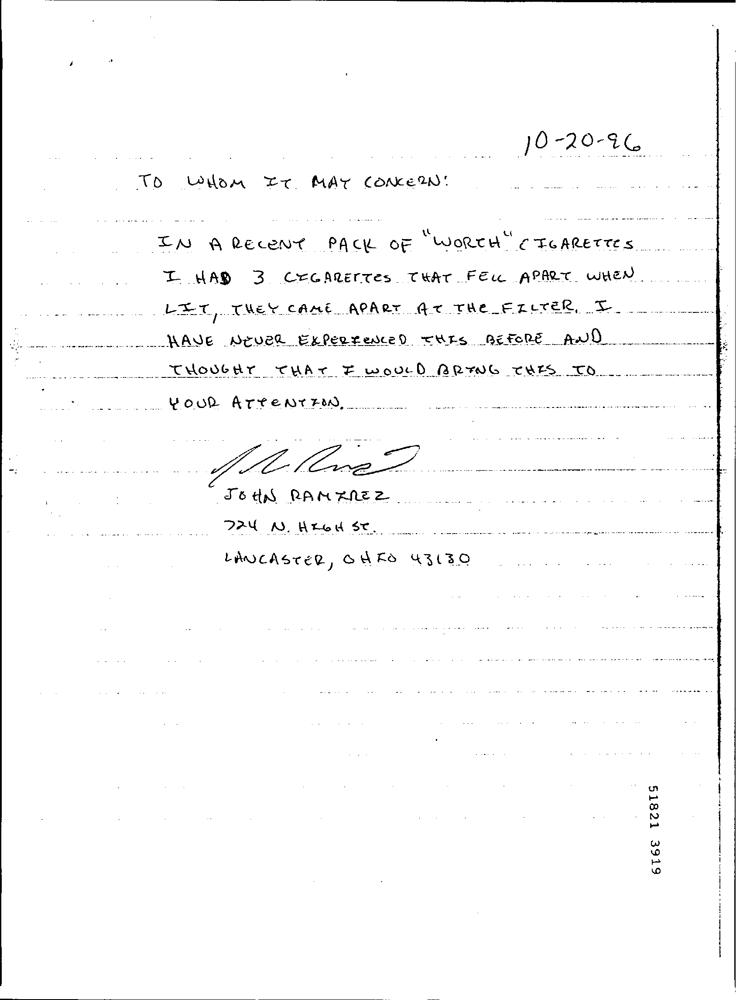 10-20-96
TO WHOM IT MAY CONCERN:
IN A RECENT PACK OF "WORTH" CIGARETTES
I HAD 3 CIGARETTES THAT FELL APART WHEN
LIT, THEY CAME APART AT THE FILTER. I
HAVE NEVER EXPERIENCED THIS BEFORE AND
THOUGHT THAT I WOULD BRING THIS TO
YOUR ATTENTION.
JOHN RAMIREZ
724 N. HIGH ST.
LANCASTER, OHIO 43130
51821 3919